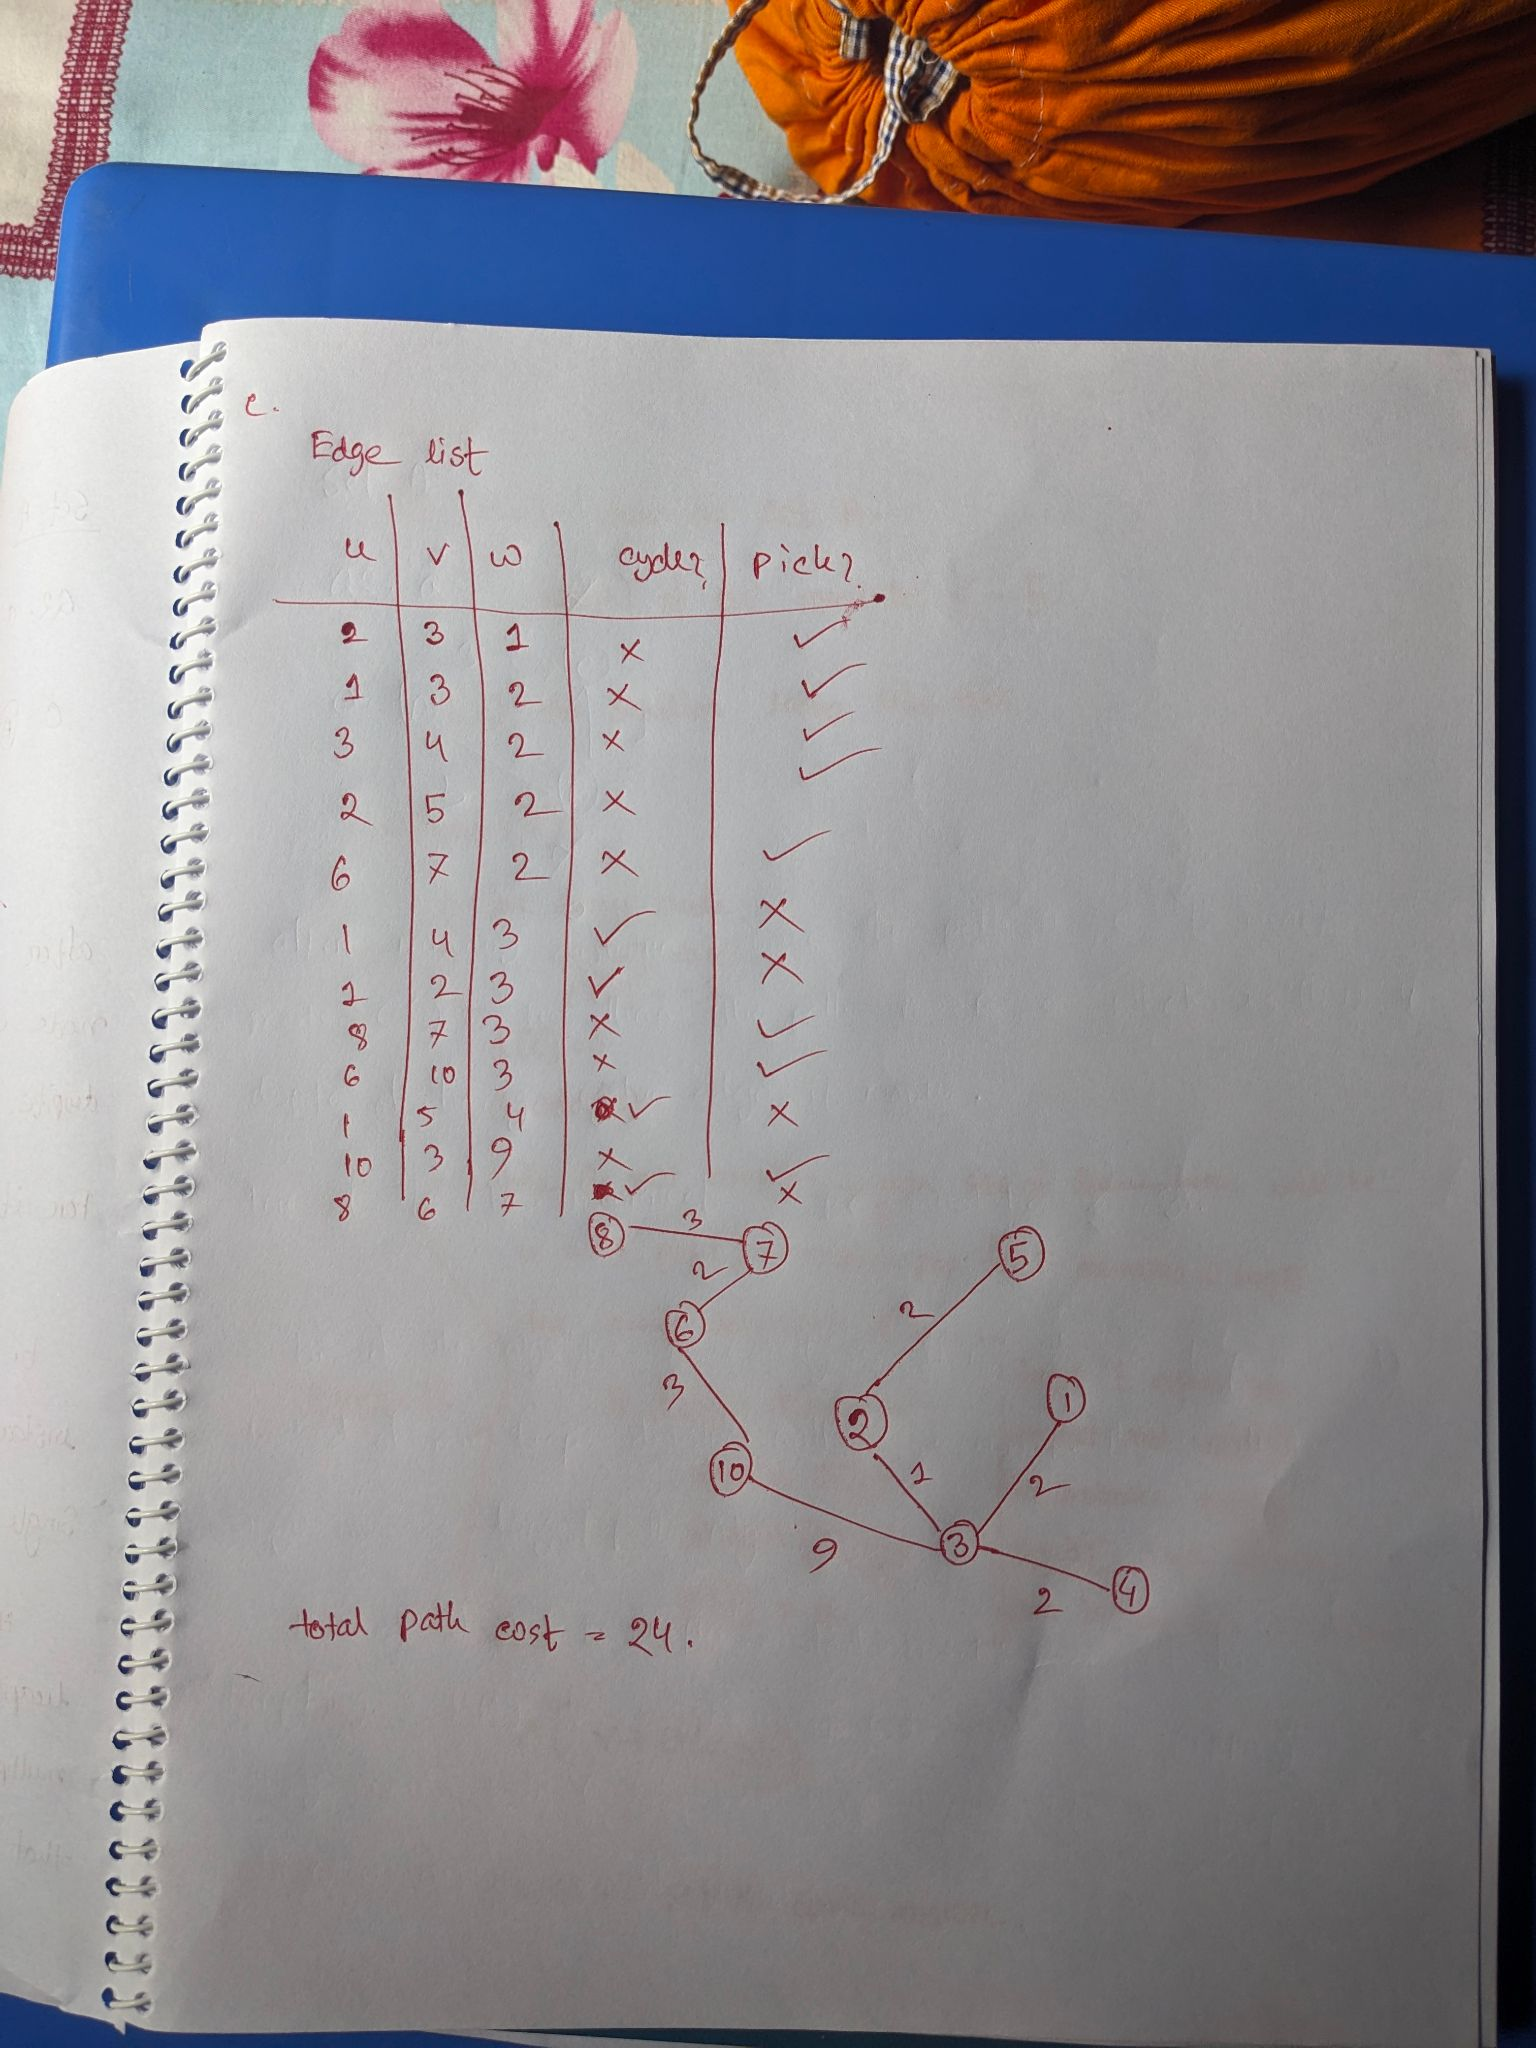 c.
Edge list
u v w cycle? pick?
2 3 1 × ✓
1 3 2 × ✓
3 4 2 × ✓
2 5 2 × ✓
6 7 2 × ✓
1 4 3 ✓ ×
1 2 3 ✓ ×
8 7 3 × ✓
6 10 3 × ✓
1 5 4 ✓ ×
10 3 9 × ✓
8 6 7 ✓ ×
8 3 7
2
5
6
2
3
1
2
10
1
2
9
3
2
4
total path cost = 24.